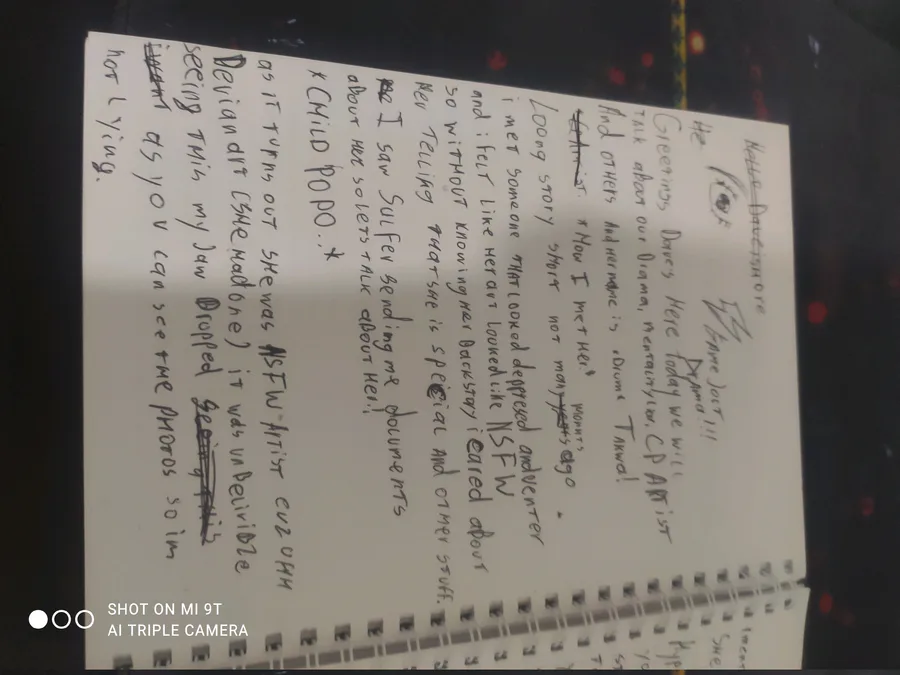 Drama!!!
Greetings Daves Here Today we will
TALK about our Drama, mentality ion, CP ARTist
And others And her name is
*How I met Her*
Loong story short not many months ago.
i met someone THAT looked depressed and venter
and i felt like Her art looked like NSFW
so without knowing Her Backstory i cared about
Her Telling that she is special And other stuff.
I saw Sulfer sending me documents
about Her so lets talk about Her!
*CHILD POPO..*
as iT Turns out she was NSFW-ARTist cuz uHH
DEViandrt (SHE Madone) it was unbelivible
seeing THis my Jaw Dropped
as you can see the PHotos so im
not Lying.
SHOT ON MI 9T
AI TRIPLE CAMERA